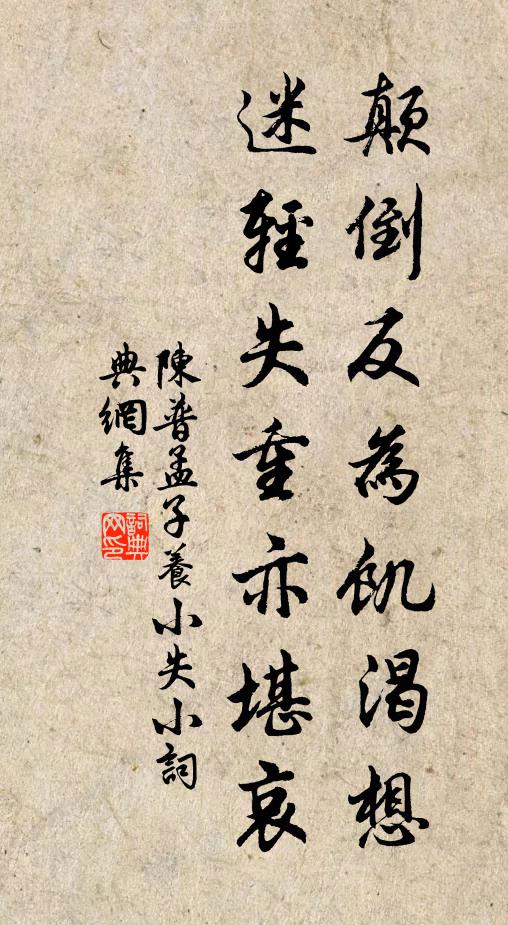 顛倒反為飢渴想
迷輕失重亦堪哀
陳普孟子養小失小詞
典網集
詞典網印